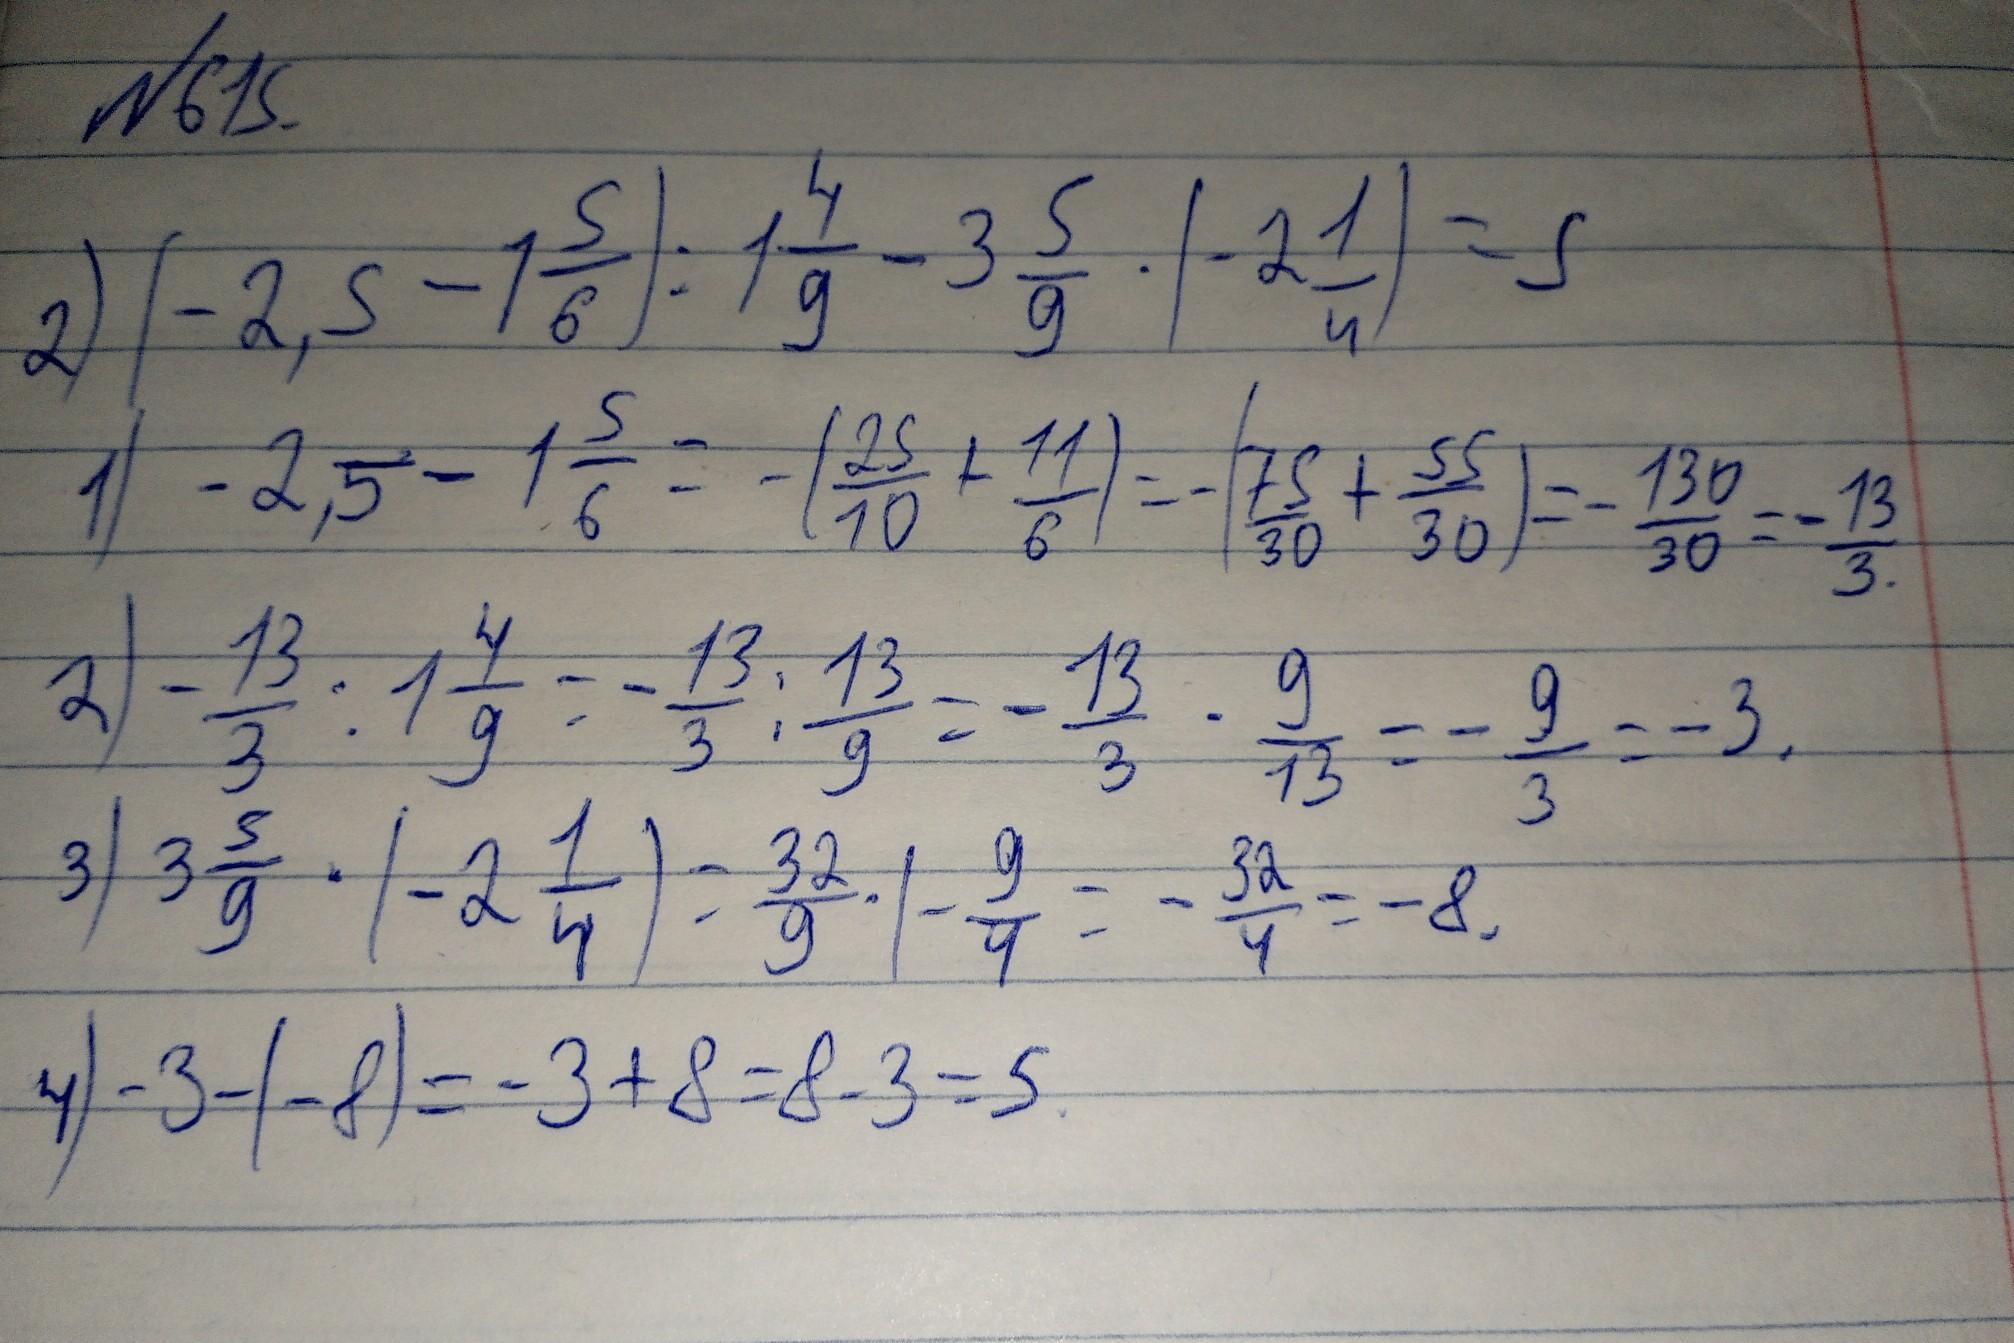 №615.
2) (-2,5 - 1 5/6) : 1 4/9 - 3 5/9 · (-2 1/4) = 5
1) -2,5 - 1 5/6 = -(25/10 + 11/6) = -(75/30 + 55/30) = -130/30 = -13/3.
2) -13/3 : 1 4/9 = -13/3 : 13/9 = -13/3 · 9/13 = -9/3 = -3.
3) 3 5/9 · (-2 1/4) = 32/9 · (-9/4 = -32/4 = -8.
4) -3-(-8) = -3+8=8-3=5.